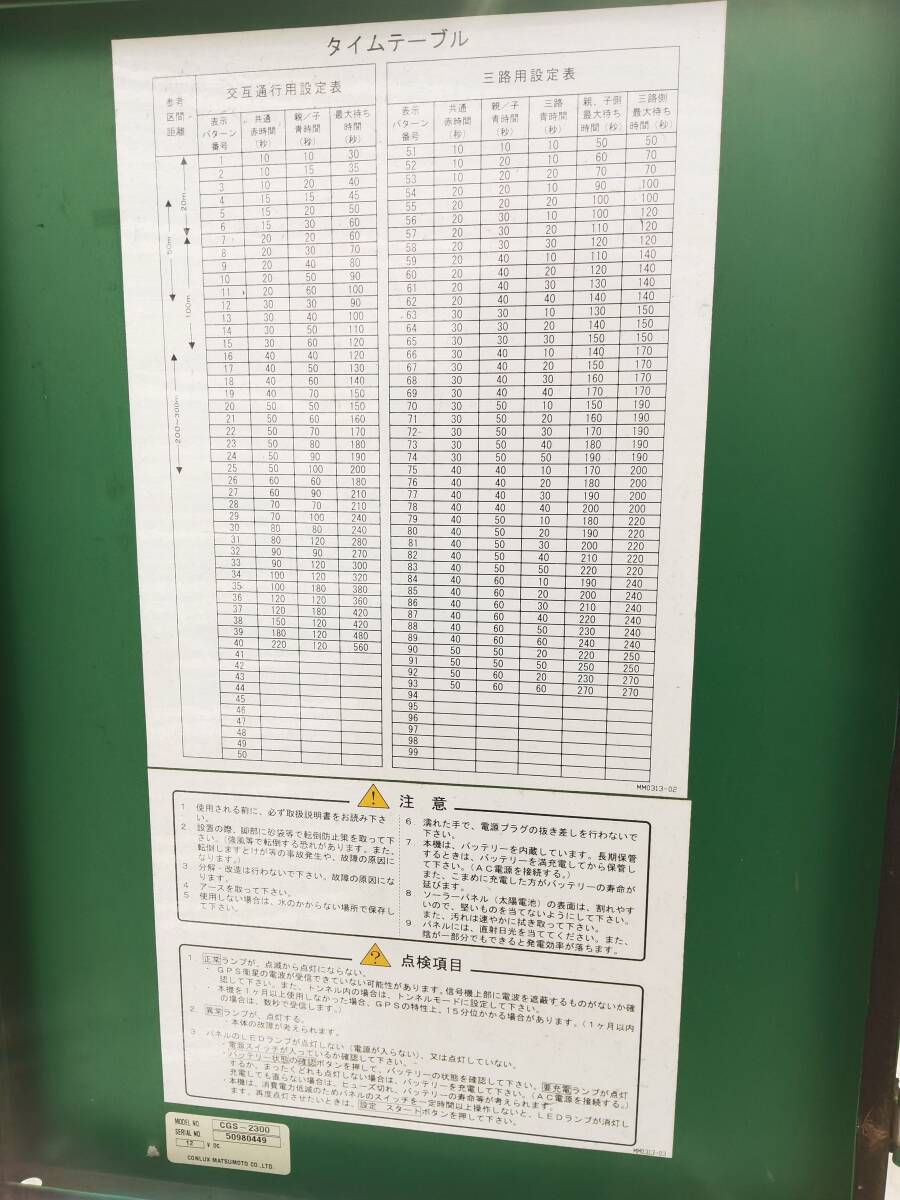 タイムテーブル
交互通行用設定表
参考区間距離 表示パターン番号 共通赤時間(秒) 親/子青時間(秒) 最大待ち時間(秒)
1 10 10 30
2 10 15 35
3 10 20 40
4 15 15 45
5 15 20 50
6 15 30 60
7 20 20 60
8 20 30 70
9 20 40 80
10 20 50 90
11 20 60 100
12 30 30 90
13 30 40 100
14 30 50 110
15 30 60 120
16 40 40 120
17 40 50 130
18 40 60 140
19 40 70 150
20 50 50 150
21 50 60 160
22 50 70 170
23 50 80 180
24 50 90 190
25 50 100 200
26 60 60 180
27 60 90 210
28 70 70 210
29 70 100 240
30 80 80 240
31 80 120 280
32 90 90 270
33 90 120 300
34 100 120 320
35 100 180 380
36 120 120 360
37 120 180 420
38 150 120 420
39 180 120 480
40 220 120 560
41
42
43
44
45
46
47
48
49
50
20m
50m
100m
200~300m
三路用設定表
表示パターン番号 共通赤時間(秒) 親/子青時間(秒) 三路青時間(秒) 親、子側最大待ち時間(秒) 三路側最大待ち時間(秒)
51 10 10 10 50 50
52 10 20 10 60 70
53 10 20 20 70 70
54 20 20 10 90 100
55 20 20 20 100 100
56 20 30 10 100 120
57 20 30 20 110 120
58 20 30 30 120 120
59 20 40 10 110 140
60 20 40 20 120 140
61 20 40 30 130 140
62 20 40 40 140 140
63 30 30 10 130 150
64 30 30 20 140 150
65 30 30 30 150 150
66 30 40 10 140 170
67 30 40 20 150 170
68 30 40 30 160 170
69 30 40 40 170 170
70 30 50 10 150 190
71 30 50 20 160 190
72 30 50 30 170 190
73 30 50 40 180 190
74 30 50 50 190 190
75 40 40 10 170 200
76 40 40 20 180 200
77 40 40 30 190 200
78 40 40 40 200 200
79 40 50 10 180 220
80 40 50 20 190 220
81 40 50 30 200 220
82 40 50 40 210 220
83 40 50 50 220 220
84 40 60 10 190 240
85 40 60 20 200 240
86 40 60 30 210 240
87 40 60 40 220 240
88 40 60 50 230 240
89 40 60 60 240 240
90 50 50 20 220 250
91 50 50 50 250 250
92 50 60 20 230 270
93 50 60 60 270 270
94
95
96
97
98
99
MM0313-02
注 意
1 使用される前に、必ず取扱説明書をお読み下さ
い。
2 設置の際、脚部に砂袋等で転倒防止策を取って下
さい。(強風等で転倒する恐れがあります。また、
転倒しますとけが等の事故発生や、故障の原因に
なります。)
3 分解・改造は行わないで下さい。故障の原因にな
ります。
4 アースを取って下さい。
5 使用しない場合は、水のかからない場所で保存し
て下さい。
6. 濡れた手で、電源プラグの抜き差しを行わないで
下さい。
7. 本機は、バッテリーを内蔵しています。長期保管
するときは、バッテリーを満充電してから保管し
て下さい。(AC電源を接続する。)
また、こまめに充電した方がバッテリーの寿命が
延びます。
8 ソーラーパネル(太陽電池)の表面は、割れやす
いので、堅いものを当てないようにして下さい。
また、汚れは速やかに拭き取って下さい。
9. パネルには、直射日光を当ててください。また、
陰が一部分でもできると発電効率が落ちます。
点検項目
1 正常ランプが、点滅から点灯にならない。
・GPS衛星の電波が受信できていない可能性があります。信号機上部に電波を遮蔽するものがないか確
認して下さい。また、トンネル内の場合は、トンネルモードに設定して下さい。
・本機を1ヶ月以上使用しなかった場合、GPSの特性上、15分位かかる場合があります。(1ヶ月以内
の場合は、数秒で受信します。)
2 異常ランプが、点灯する。
・本体の故障が考えられます。
3 パネルのLEDランプが点灯しない(電源が入らない)、又は点灯していない。
・電源スイッチが入っているか確認して下さい。
・バッテリー状態の確認ボタンを押して、バッテリーの状態を確認して下さい。要充電ランプが点灯
するか、まったくどれも点灯しない場合は、バッテリーを充電して下さい。(AC電源を接続する。)
充電しても直らない場合は、ヒューズ切れ、バッテリーの寿命等が考えられます。
・本機は、消費電力低減のためパネルのスイッチを一定時間以上操作しないと、LEDランプが消灯し
ます。再度点灯させたいときは、設定 スタートボタンを押して下さい。
MM0313-03
MODEL NO. CGS-2300
SERIAL NO. 50980449
12 V DC.
CONLUX MATSUMOTO CO.,LTD.